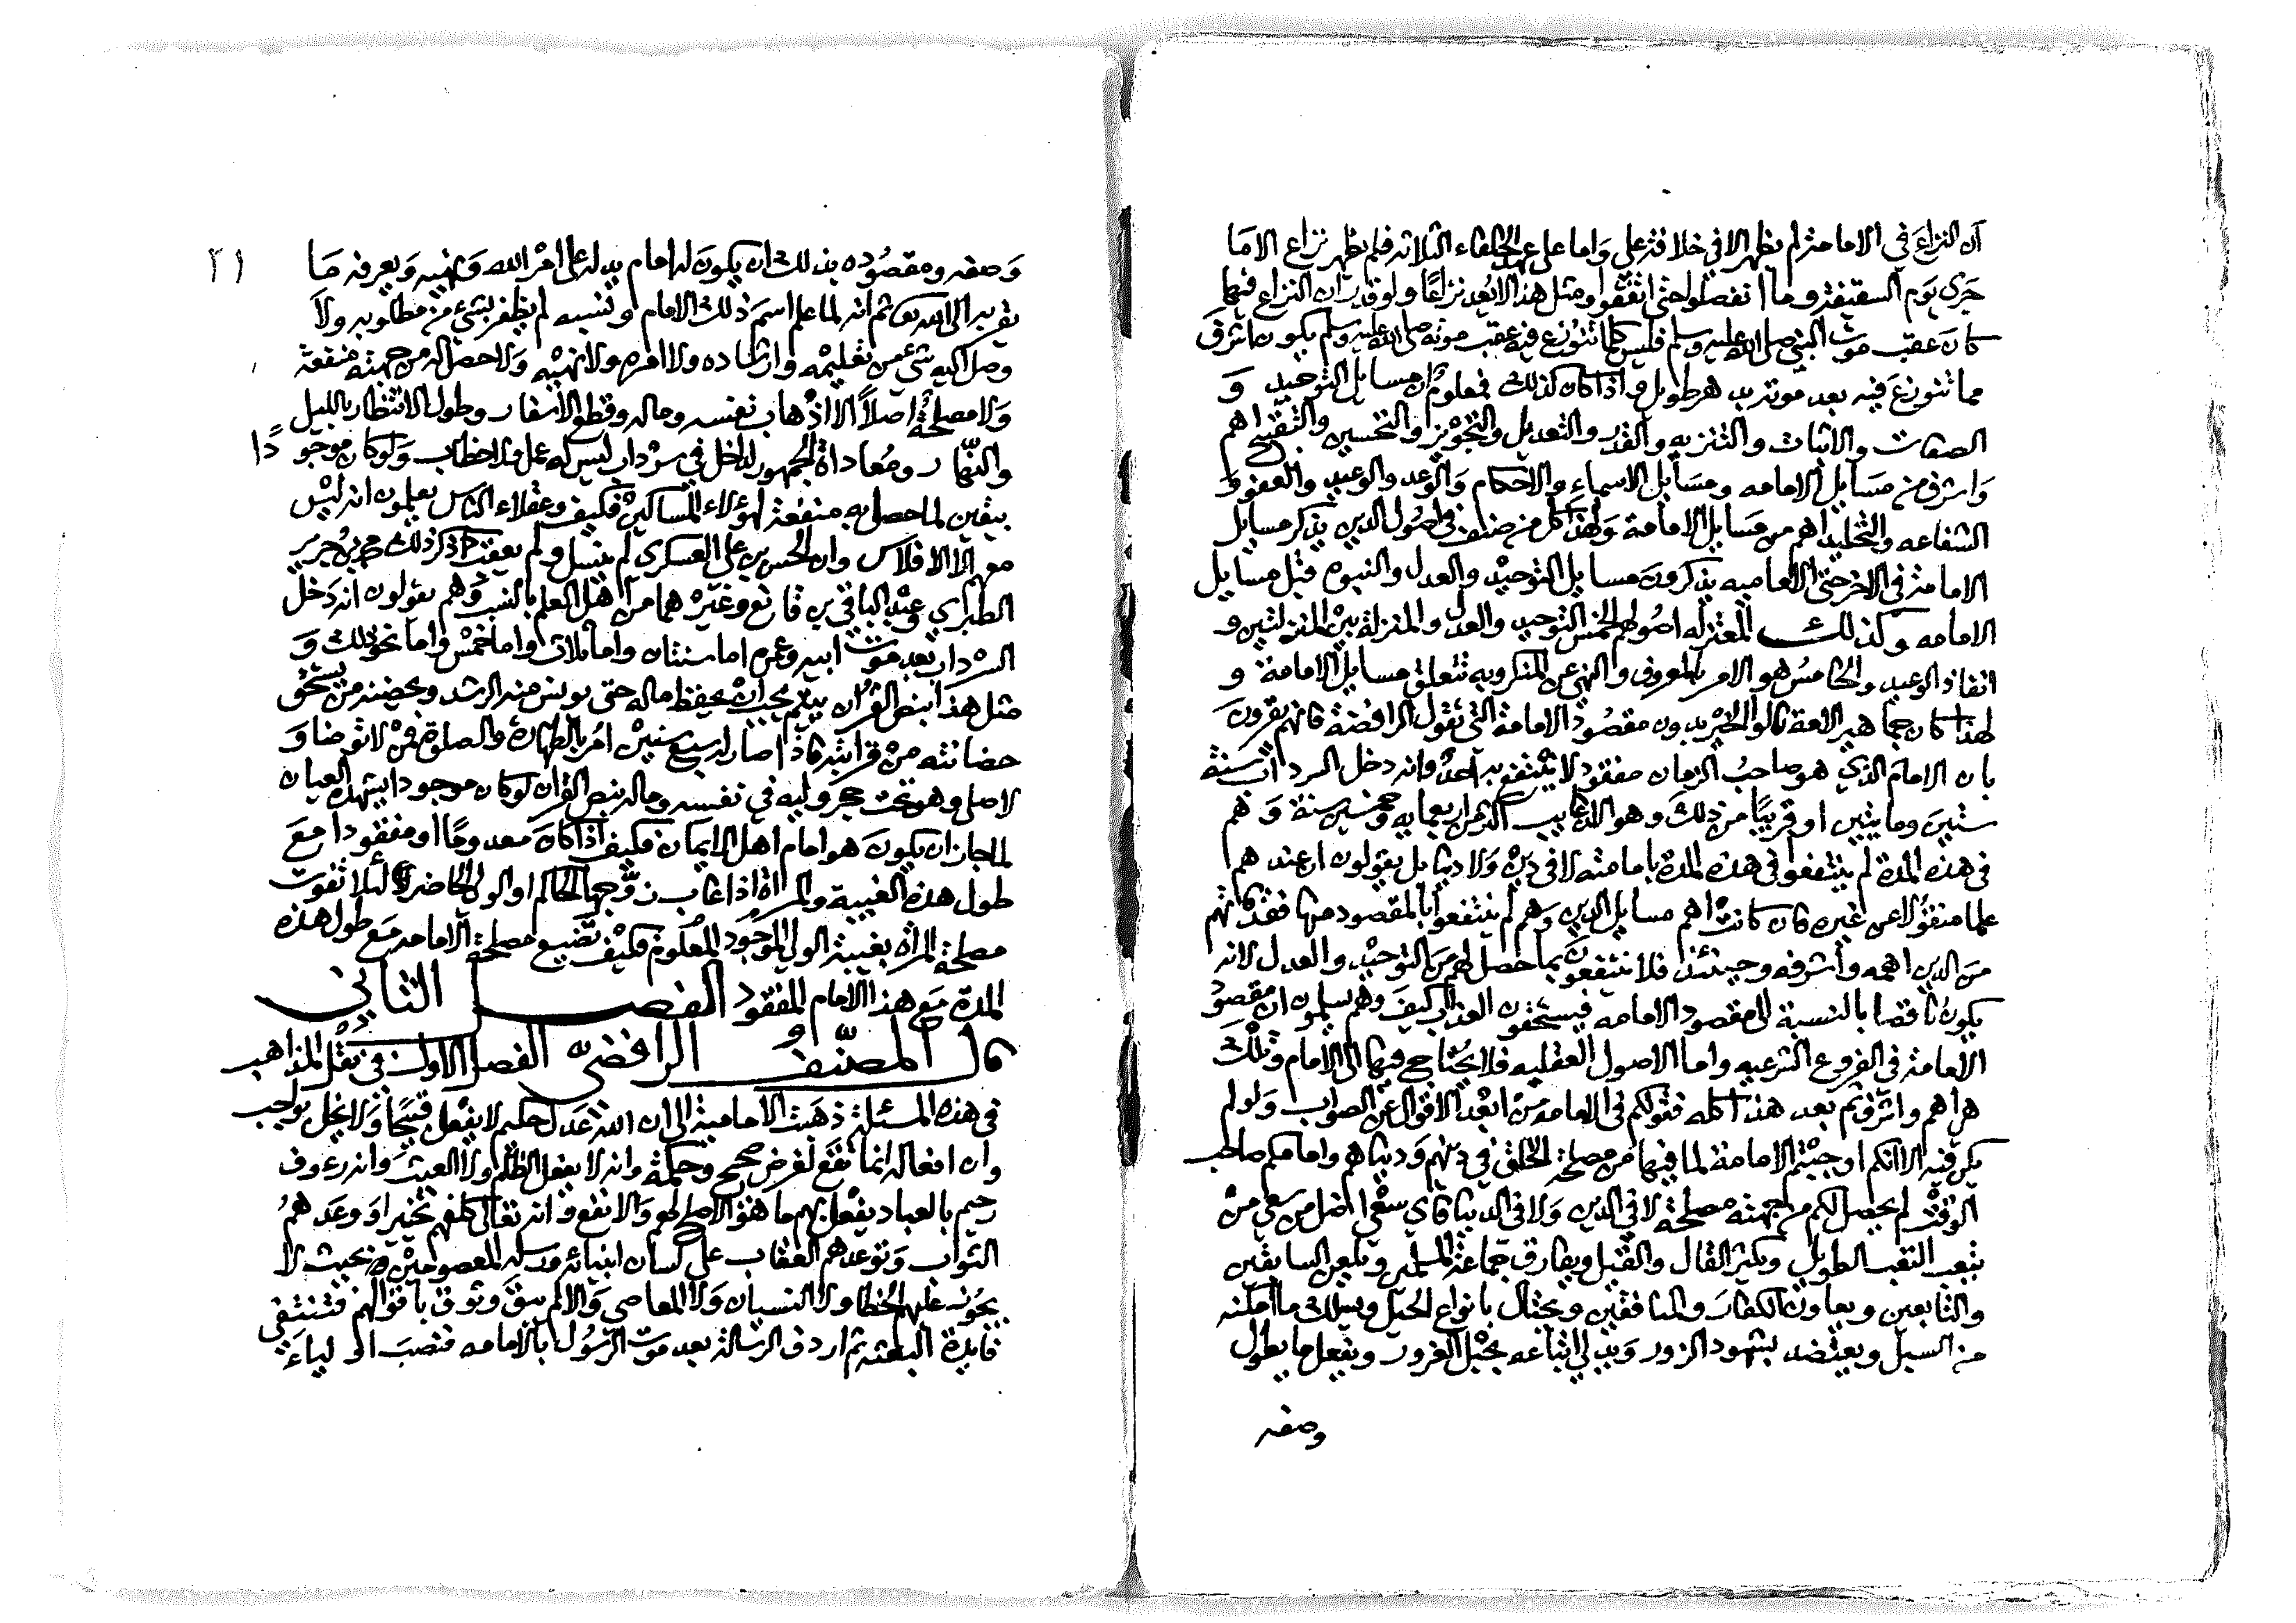 ان النزاع في الامامة لم يظهر الا في خلافة علي واما على عهد الخلفاء الثلاثة فلم يظهر نزاع الا ما
جرى يوم السقيفة وما انفصلوا حتى اتفقوا ومثل هذا لا يُعد نزاعًا ولو قدر ان النزاع فيها
كان عقب موت النبي صلى الله عليه وسلم فليس كلما تنوزع فيه عقب موته صلى الله عليه وسلم يكون اشرف
مما تنوزع فيه بعد موته بدهر طويل واذا كان كذلك فمعلوم ان مسايل التوحيد و
الصفات والاثبات والتنزيه والقدر والتعديل والتجويز والتحسين والتقبيح اهم
واشرف من مسايل الامامه ومسايل الاسماء والاحكام والوعد والوعيد والعفو و
الشفاعه والتخليد اهم من مسايل الامامة ولهذا كل من صنف في اصول الدين يذكر مسايل
الامامة في الاخر حتى الاماميه يذكرون مسايل التوحيد والعدل والنبوه قبل مسايل
الامامه وكذلك المعتزله اصولهم الخمس التوحيد والعدل والمنزلة بين المنزلتين و
انفاذ الوعيد والخامس هو الامر بالمعروف والنهي عن المنكر وبه تتعلق مسايل الامامة و
لهذا كان جماهير الامة نالوا الخير بدون مقصود الامامة التي تقول الرافضة فانهم يقرون
بان الامام الذي هو صاحب الزمان مفقود لا ينتفع به احد وانه دخل السرداب سنة
ستين ومايتين او قريبًا من ذلك وهو الان غايب اكثر من اربعمايه وخمسين سنة وهم
في هذه المدة لم ينتفعوا في هذه المدة بامامته لا في دين ولا دنيا بل يقولون ان عندهم
علما منقولا عن غيره فان كانت اهم مسايل الدين وهم لم ينتفعوا بالمقصود منها فقد فاتهم
من الدين اهمه واشرفه وحينئذ فلا ينتفعون بما حصل لهم من التوحيد والعدل لانه
يكون ناقصا بالنسبة الى مقصود الامامه فيستحقون العذاب كيف وهم يسلمون ان مقصود
الامامة في الفروع الشرعيه واما الاصول العقليه فلا يحتاج فيها الى الامام وتلك
هي اهم واشرف ثم بعد هذا كله فقولكم في الامامه من ابعد الاقوال عن الصواب ولو لم
يكن فيه الا انكم اوجبتم الامامة لما فيها من مصلحة الخلق في دينهم ودنياهم وامامكم صاحب
الوقت لم يحصل لكم من جهته مصلحة لا في الدين ولا في الدنيا فاي سعي اضل من سعي من
يتعب التعب الطويل ويكثر القال والقيل ويفارق جماعة المسلمين ويلعن السابقين
والتابعين ويعاون الكفار والمنافقين ويحتال بانواع الحيل ويسلك ما امكنه
من السبل ويعتضد بشهود الزور ويدلي اتباعه بحبل الغرور ويفعل ما يطول
وصفه
٢١
وصفه ومقصوده بذلك ان يكون له امام يدله على امر الله ونهيه ويعرفه ما
يقربه الى الله تعالى ثم انه لما علم اسم ذلك الامام ونسبه لم يظفر بشيء من مطلوبه ولا
وصل اليه شيء من تعليمه وارشاده ولا امره ولا نهيه ولا حصل له من جهته منفعة
ولا مصلحة اصلاً الا اذهاب نفسه وماله وقطع الاسفار وطول الانتظار بالليل
والنهار ومعاداة الجمهور لداخل في سرداب ليس له عمل ولا خطاب ولو كان موجودًا
بيقين لما حصل به منفعة لهؤلاء المساكين فكيف وعقلاء الناس يعلمون انه ليس
معهم الا الافلاس وان الحسن بن علي العسكري لم ينسل ولم يعقب كما ذكر ذلك محمد بن جرير
الطبري وعبد الباقي بن قانع وغيرهما من اهل العلم بالنسب وهم يقولون انه دخل
السرداب بعد موت ابيه وعمره اما سنتان واما ثلاث واما خمس واما نحو ذلك و
مثل هذا بنص القران يتيم يجب ان يحفظ ماله حتى يونس منه الرشد ويحضنه من يستحق
حضانته من قرابته فاذا صار له سبع سنين امر بالطهارة والصلوة فمن لا توضا و
لا صلى وهو تحت حجر وليه في نفسه وماله بنص القران لو كان موجودا يشهده العيان
لما جاز ان يكون هو امام اهل الايمان فكيف اذا كان معدومًا او مفقودا مع
طول هذه الغيبة والمراة اذا غاب زوجها الحاكم او الولي الحاضر لئلا تفوت
مصلحة المراة بغيبة الولي الموجود المعلوم فكيف تضيع مصلحة الامامه مع طول هذه
المدة مع هذا الامام المفقود الفصل الثاني
قال المصنف الرافضي الفصل الاول في نقل المذاهب
في هذه المسئلة ذهبت الامامية الى ان الله عدل حكيم لا يفعل قبيحًا ولا يخل بواجب
وان افعاله انما تقع لغرض صحيح وحكمة وانه لا يفعل الظلم ولا العبث وانه رءوف
رحيم بالعباد يفعل بهم ما هو الاصلح لهم والانفع وانه تعالى كلفهم تخييرا ووعدهم
الثواب وتوعدهم العقاب على لسان انبيائه ورسله المعصومين بحيث لا
يجوز عليهم الخطا ولا النسيان ولا المعاصي والا لم يبق وثوق باقوالهم فتنتفي
فايدة البعثه ثم اردف الرسالة بعد موت الرسول بالامامه فنصب اولياء